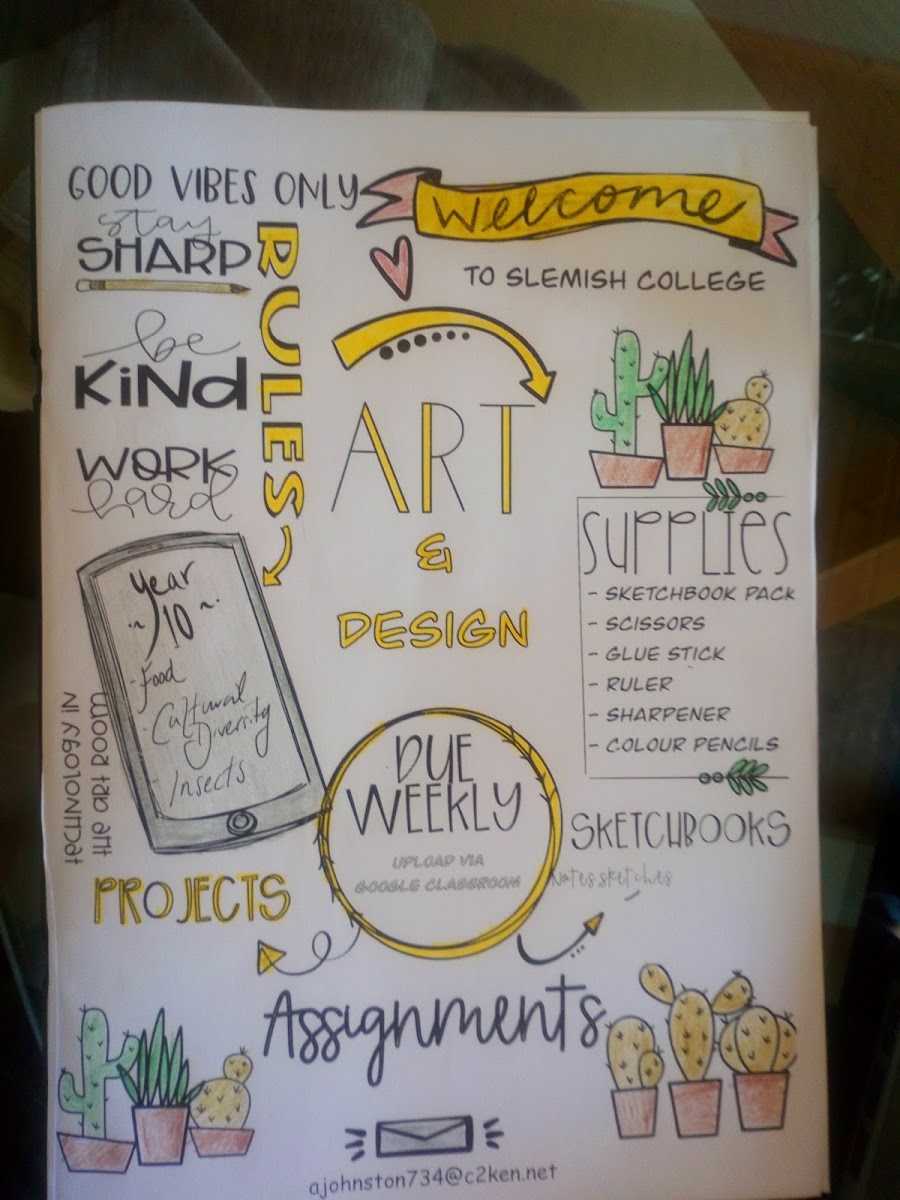 GOOD VIBES ONLY
stay
SHARP
be
KiNd
WORK
hard
RULES
Welcome
TO SLEMISH COLLEGE
ART
&
DESIGN
SUPPLIES
- SKETCHBOOK PACK
- SCISSORS
- GLUE STICK
- RULER
- SHARPENER
- COLOUR PENCILS
Year
~ 10 ~
- Food
- Cultural
Diversity
- Insects
technology in
the art room
PROJECTS
DUE
WEEKLY
UPLOAD VIA
GOOGLE CLASSROOM
SKETCHBOOKS
Notes sketches
Assignments
ajohnston734@c2ken.net